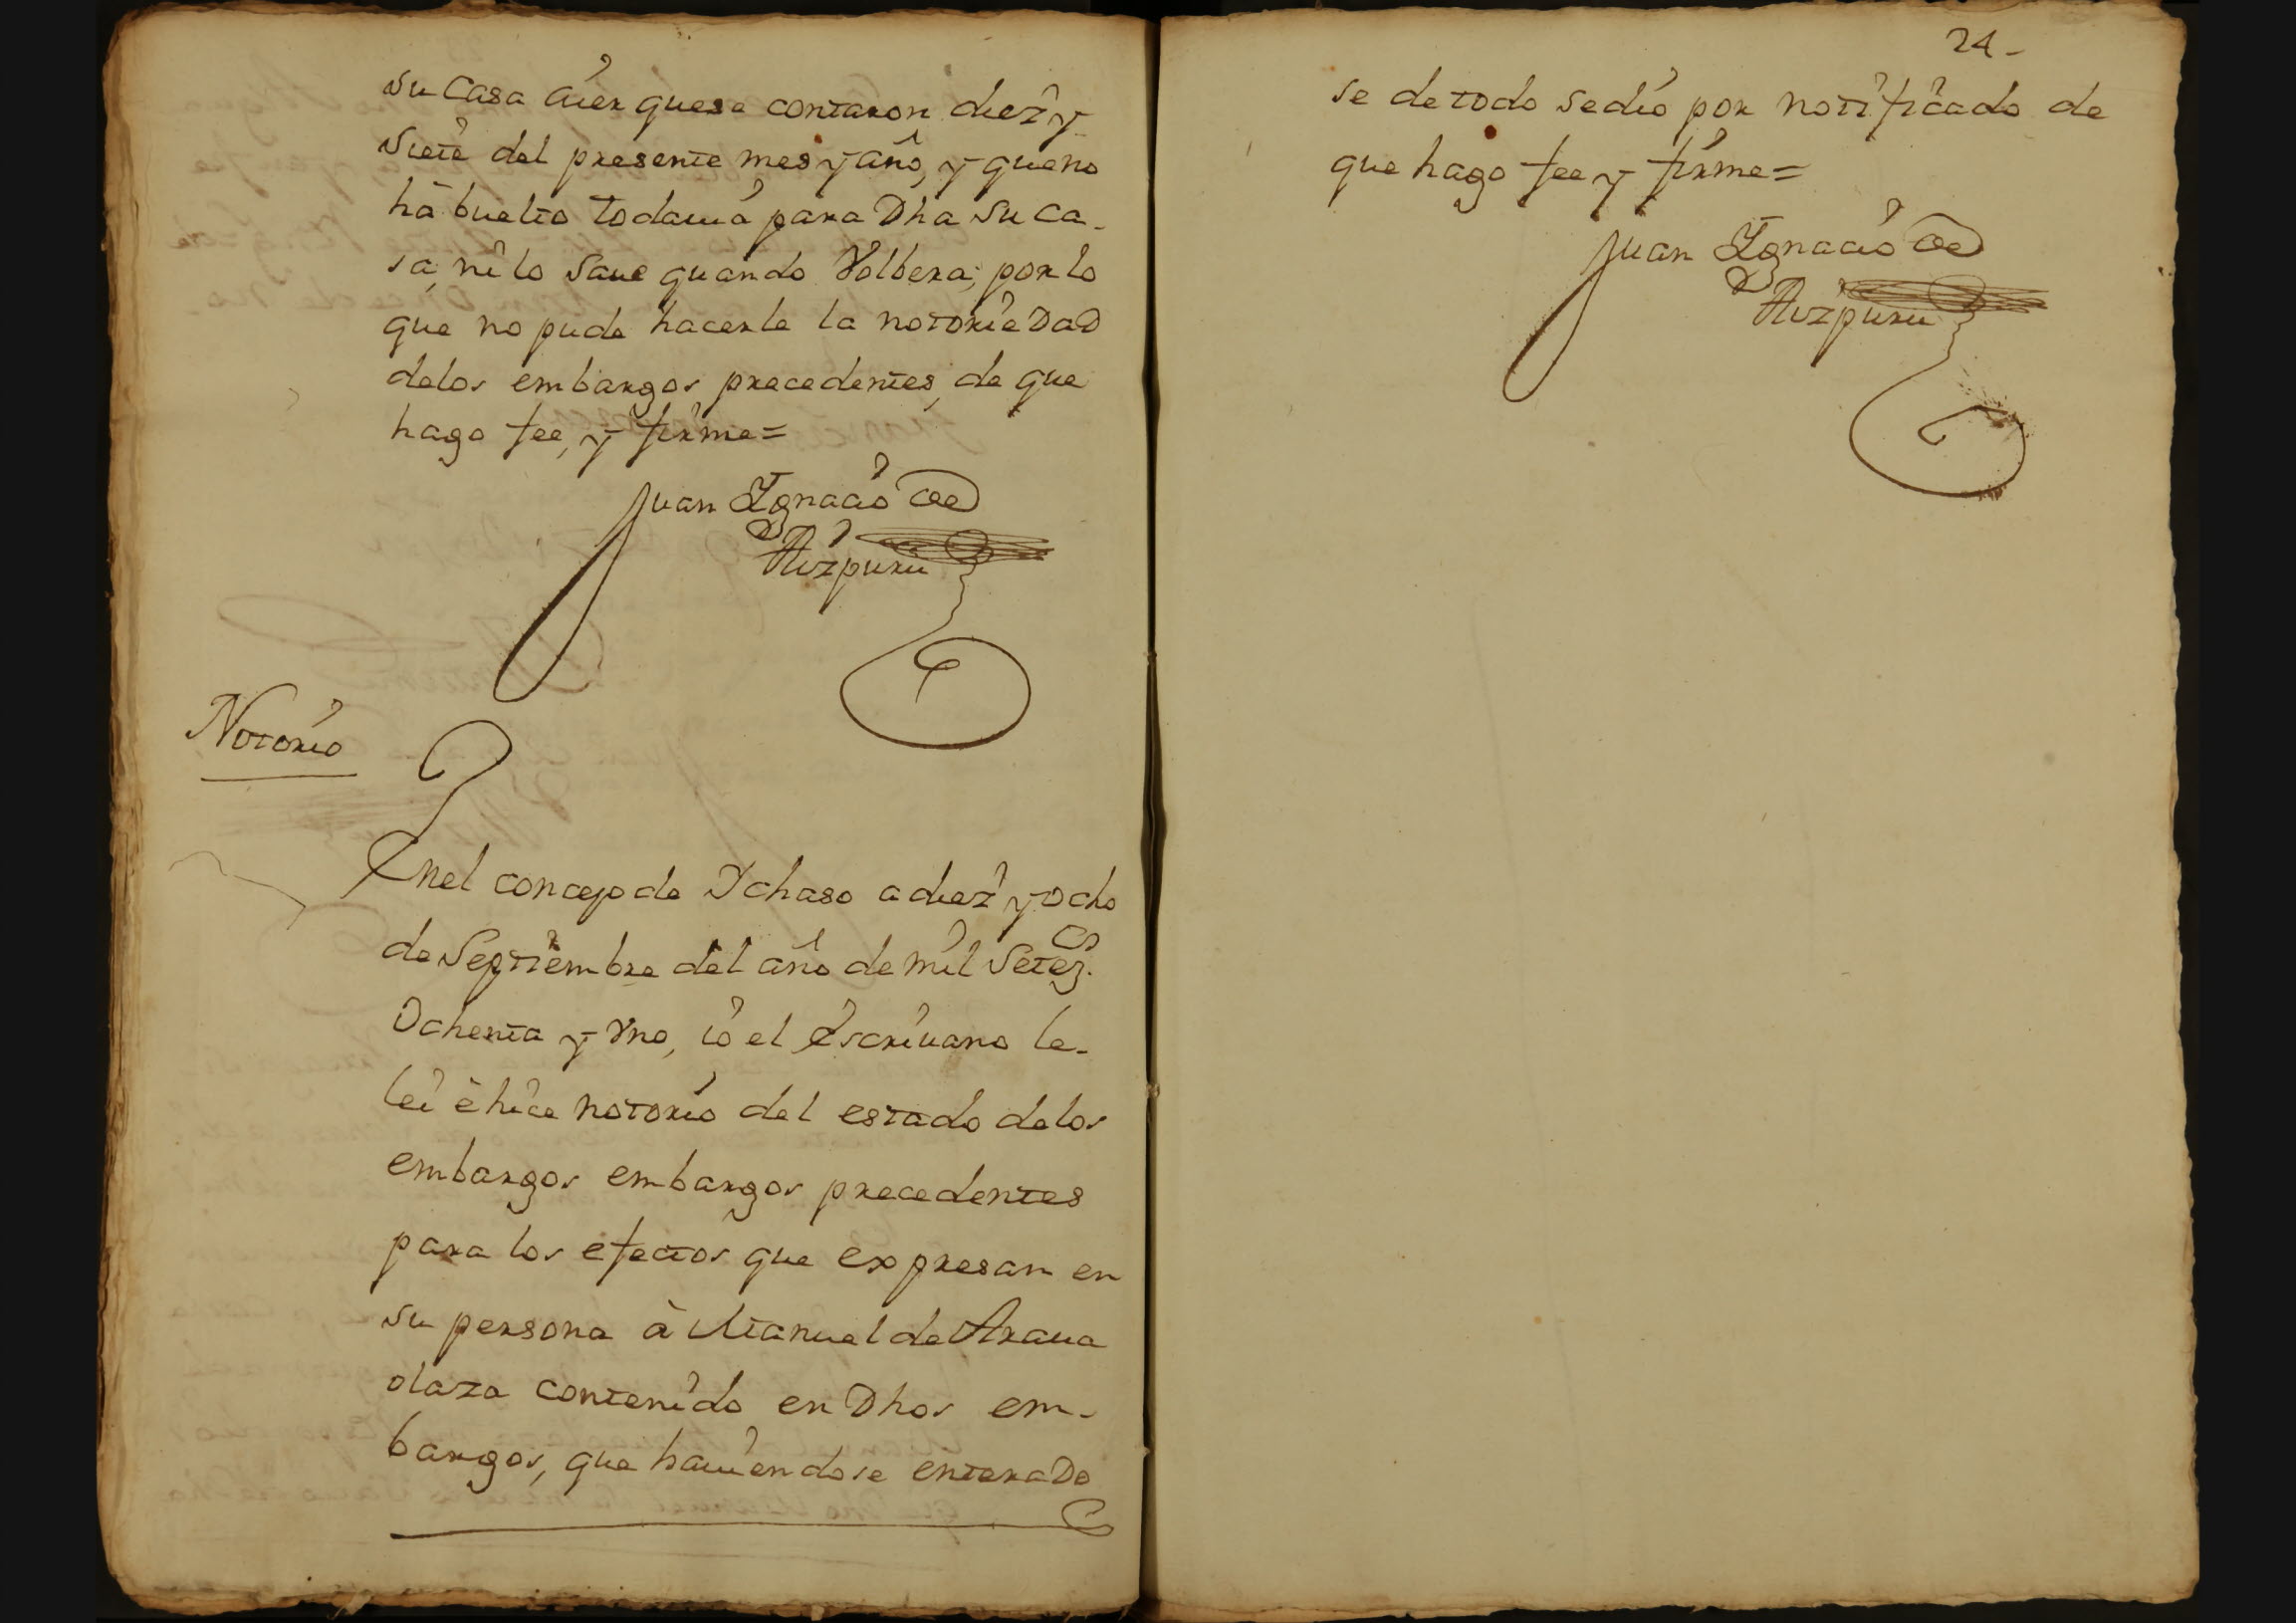 su Casa aier quese contaron diez y
Siete del presente mes y año, y que no
hà buelto todauia para Dha su ca-
sa, ni lo Saue quando Volbera; por lo
que no pude hacerle la notorieDaD
delos embargos precedentes, de que
hago fee, y firme=
Juan Ygnacio de
Aizpuru
Notorio
Enel concejo de Ychaso a diez y ocho
de Septiembre del año de mil Setez.os
Ochenta y Vno, io el Escriuano le-
lei è hice notorio del estado delos
embargos embargos precedentes
para los efectos que expresan en
su persona à Manuel de Araua
olaza contenido en Dhos em-
bargos, que hauiendose enteraDo
24-
se de todo se dio por notificado de
que hago fee y firme=
Juan Ygnacio de
Aizpuru